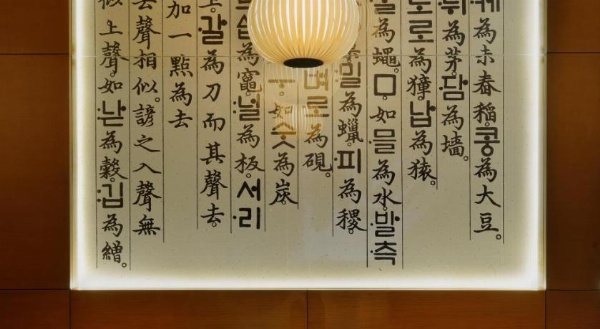 케為未舂稻。콩為大豆。
뒤為茅。담為墻。
로為獐。납為猿。
為蠅。ㅁ如믈為水。·발·측
:밀為蠟。·피為稷。
벼로為硯。
ㅜ如숫為炭。
為竈。:널為板。서·리
上。·갈為刀而其聲去。
加一點為去
去聲相似。諺之入聲無
似上聲。如:낟為穀。:깁為繒。